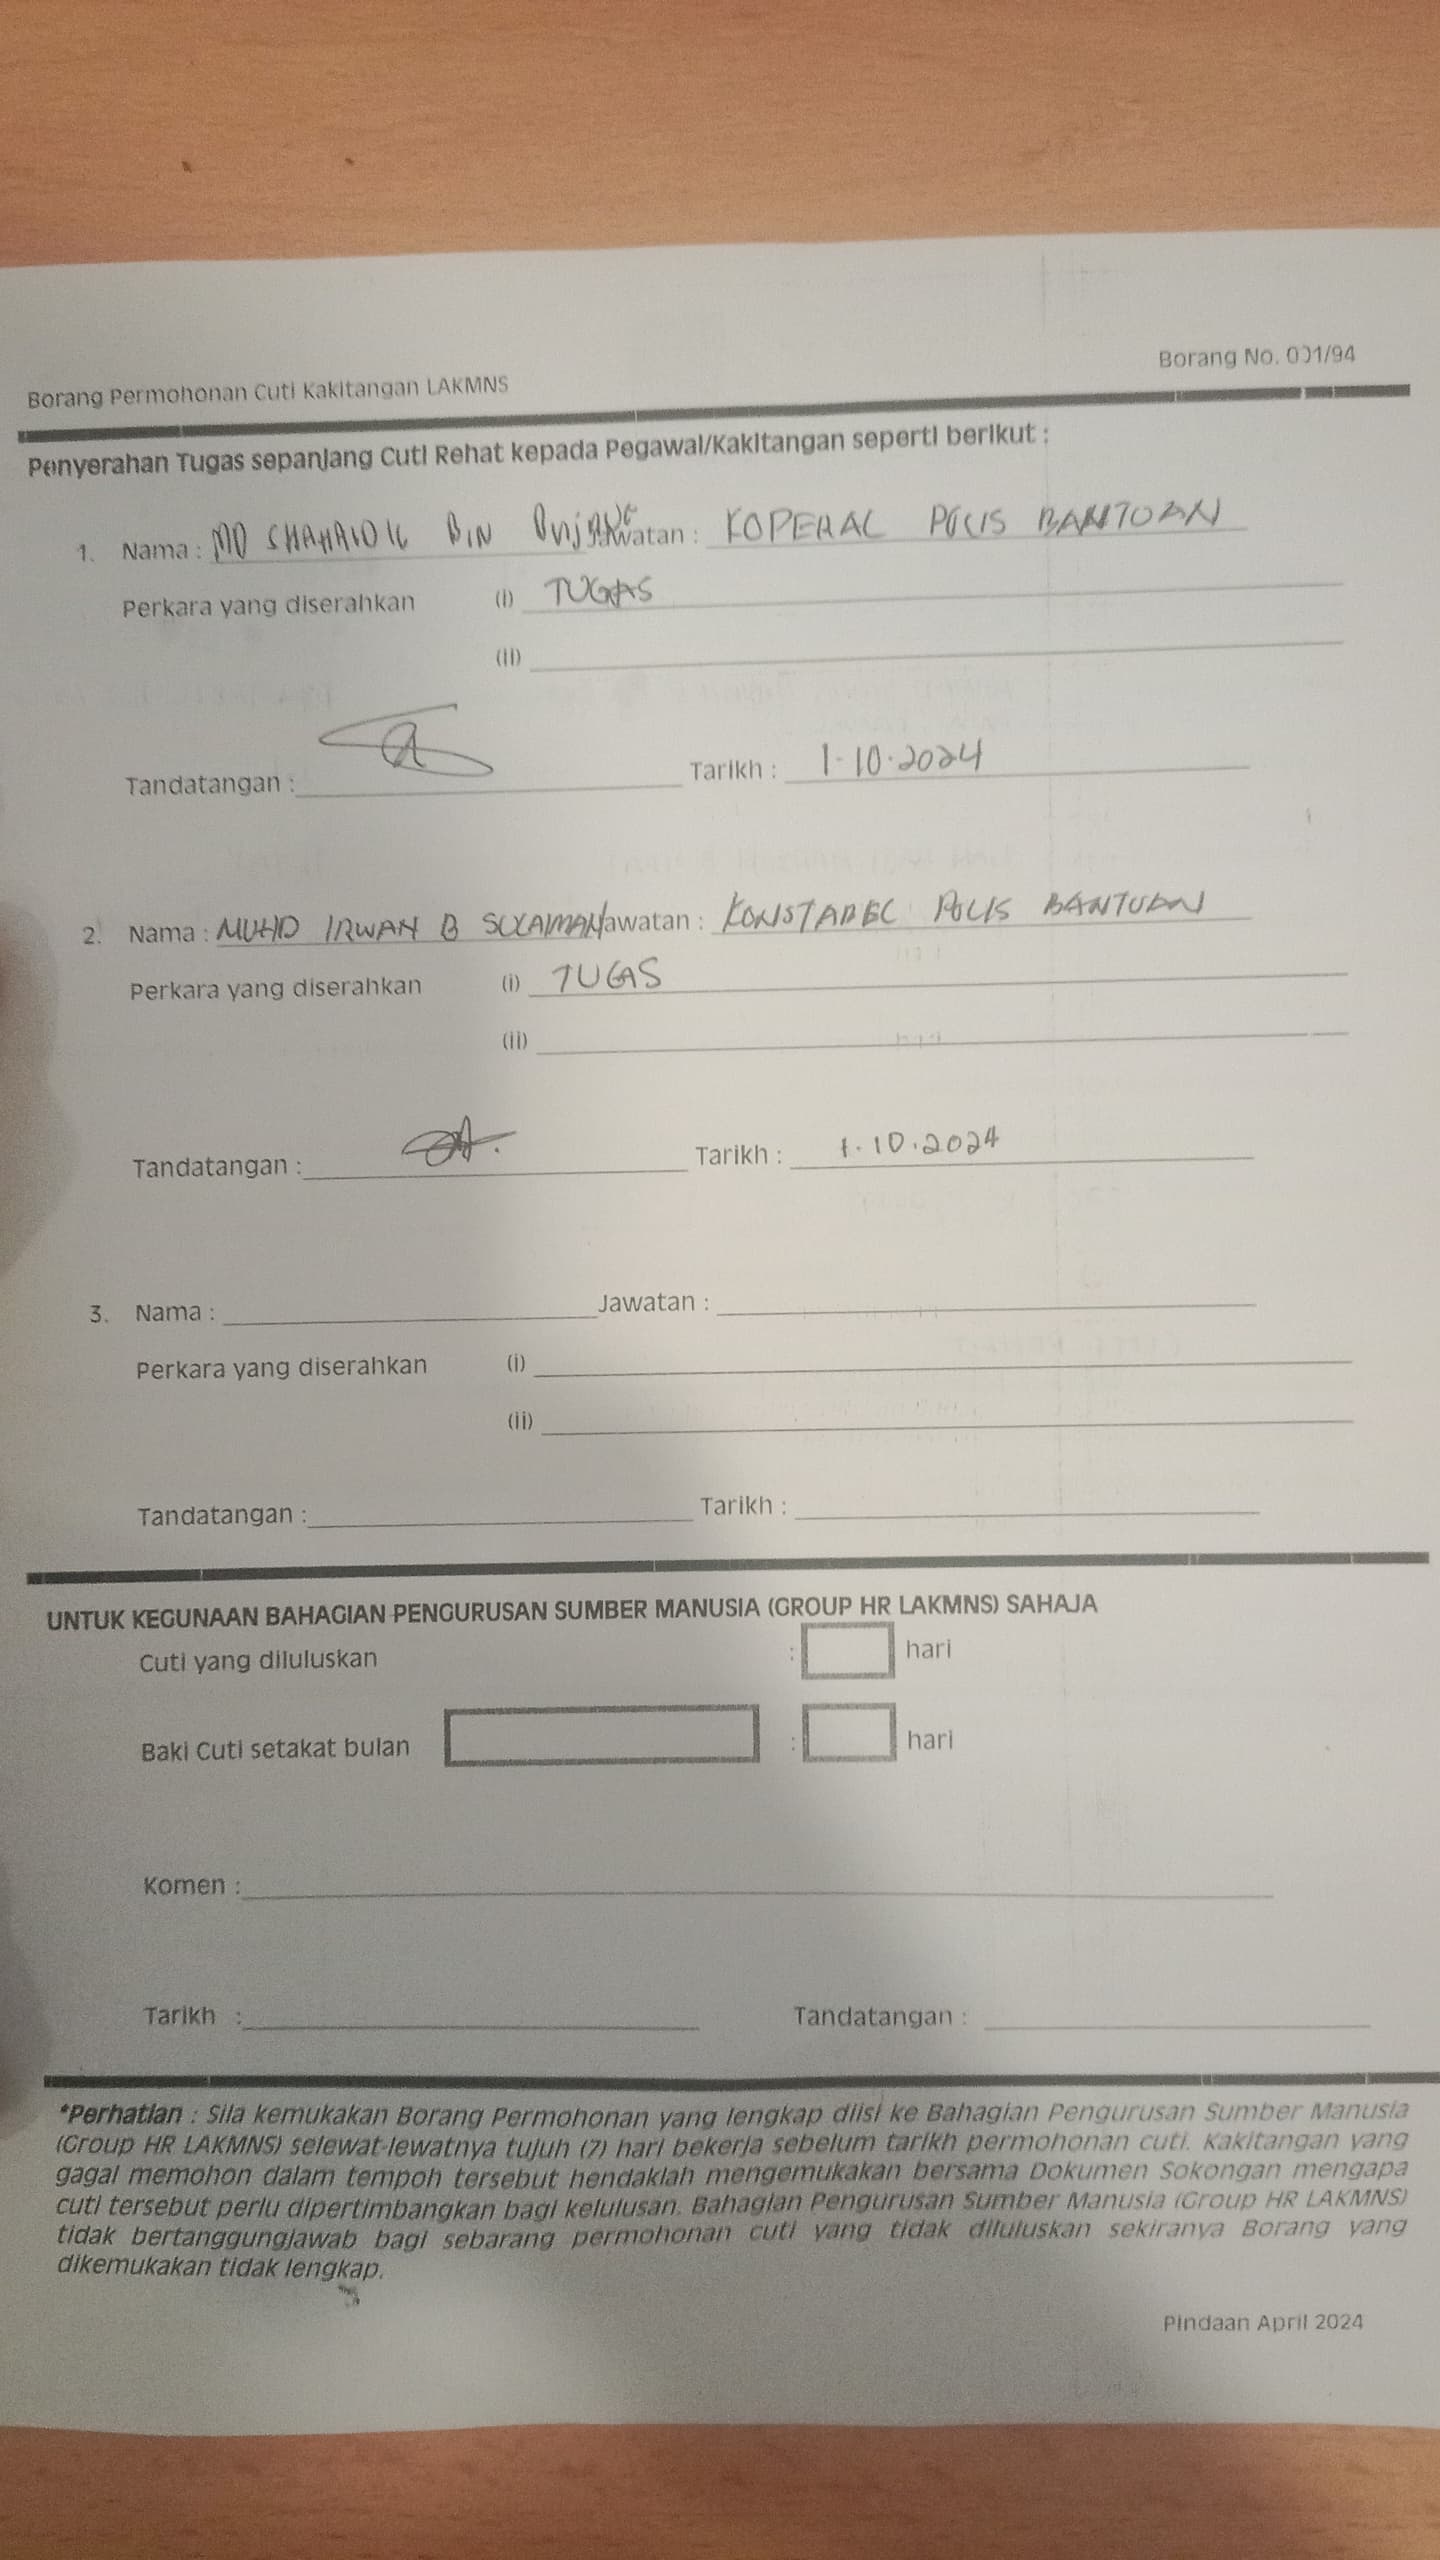 Borang No. 001/94
Borang Permohonan Cuti Kakitangan LAKMNS
Penyerahan Tugas sepanjang Cuti Rehat kepada Pegawai/Kakitangan seperti berikut :
1. Nama : MD SHAHAIDIL BIN Jawatan : KOPERAL POLIS BANTUAN
Perkara yang diserahkan (i) TUGAS
(ii)
Tandatangan : Tarikh : 1.10.2024
2. Nama : MUHD IRWAN B SULAIMAN Jawatan : KONSTABEL POLIS BANTUAN
Perkara yang diserahkan (i) TUGAS
(ii)
Tandatangan : Tarikh : 1.10.2024
3. Nama : Jawatan :
Perkara yang diserahkan (i)
(ii)
Tandatangan : Tarikh :
UNTUK KEGUNAAN BAHAGIAN PENGURUSAN SUMBER MANUSIA (GROUP HR LAKMNS) SAHAJA
Cuti yang diluluskan : hari
Baki Cuti setakat bulan : hari
Komen :
Tarikh : Tandatangan :
*Perhatian : Sila kemukakan Borang Permohonan yang lengkap diisi ke Bahagian Pengurusan Sumber Manusia
(Group HR LAKMNS) selewat-lewatnya tujuh (7) hari bekerja sebelum tarikh permohonan cuti. Kakitangan yang
gagal memohon dalam tempoh tersebut hendaklah mengemukakan bersama Dokumen Sokongan mengapa
cuti tersebut perlu dipertimbangkan bagi kelulusan. Bahagian Pengurusan Sumber Manusia (Group HR LAKMNS)
tidak bertanggungjawab bagi sebarang permohonan cuti yang tidak diluluskan sekiranya Borang yang
dikemukakan tidak lengkap.
Pindaan April 2024